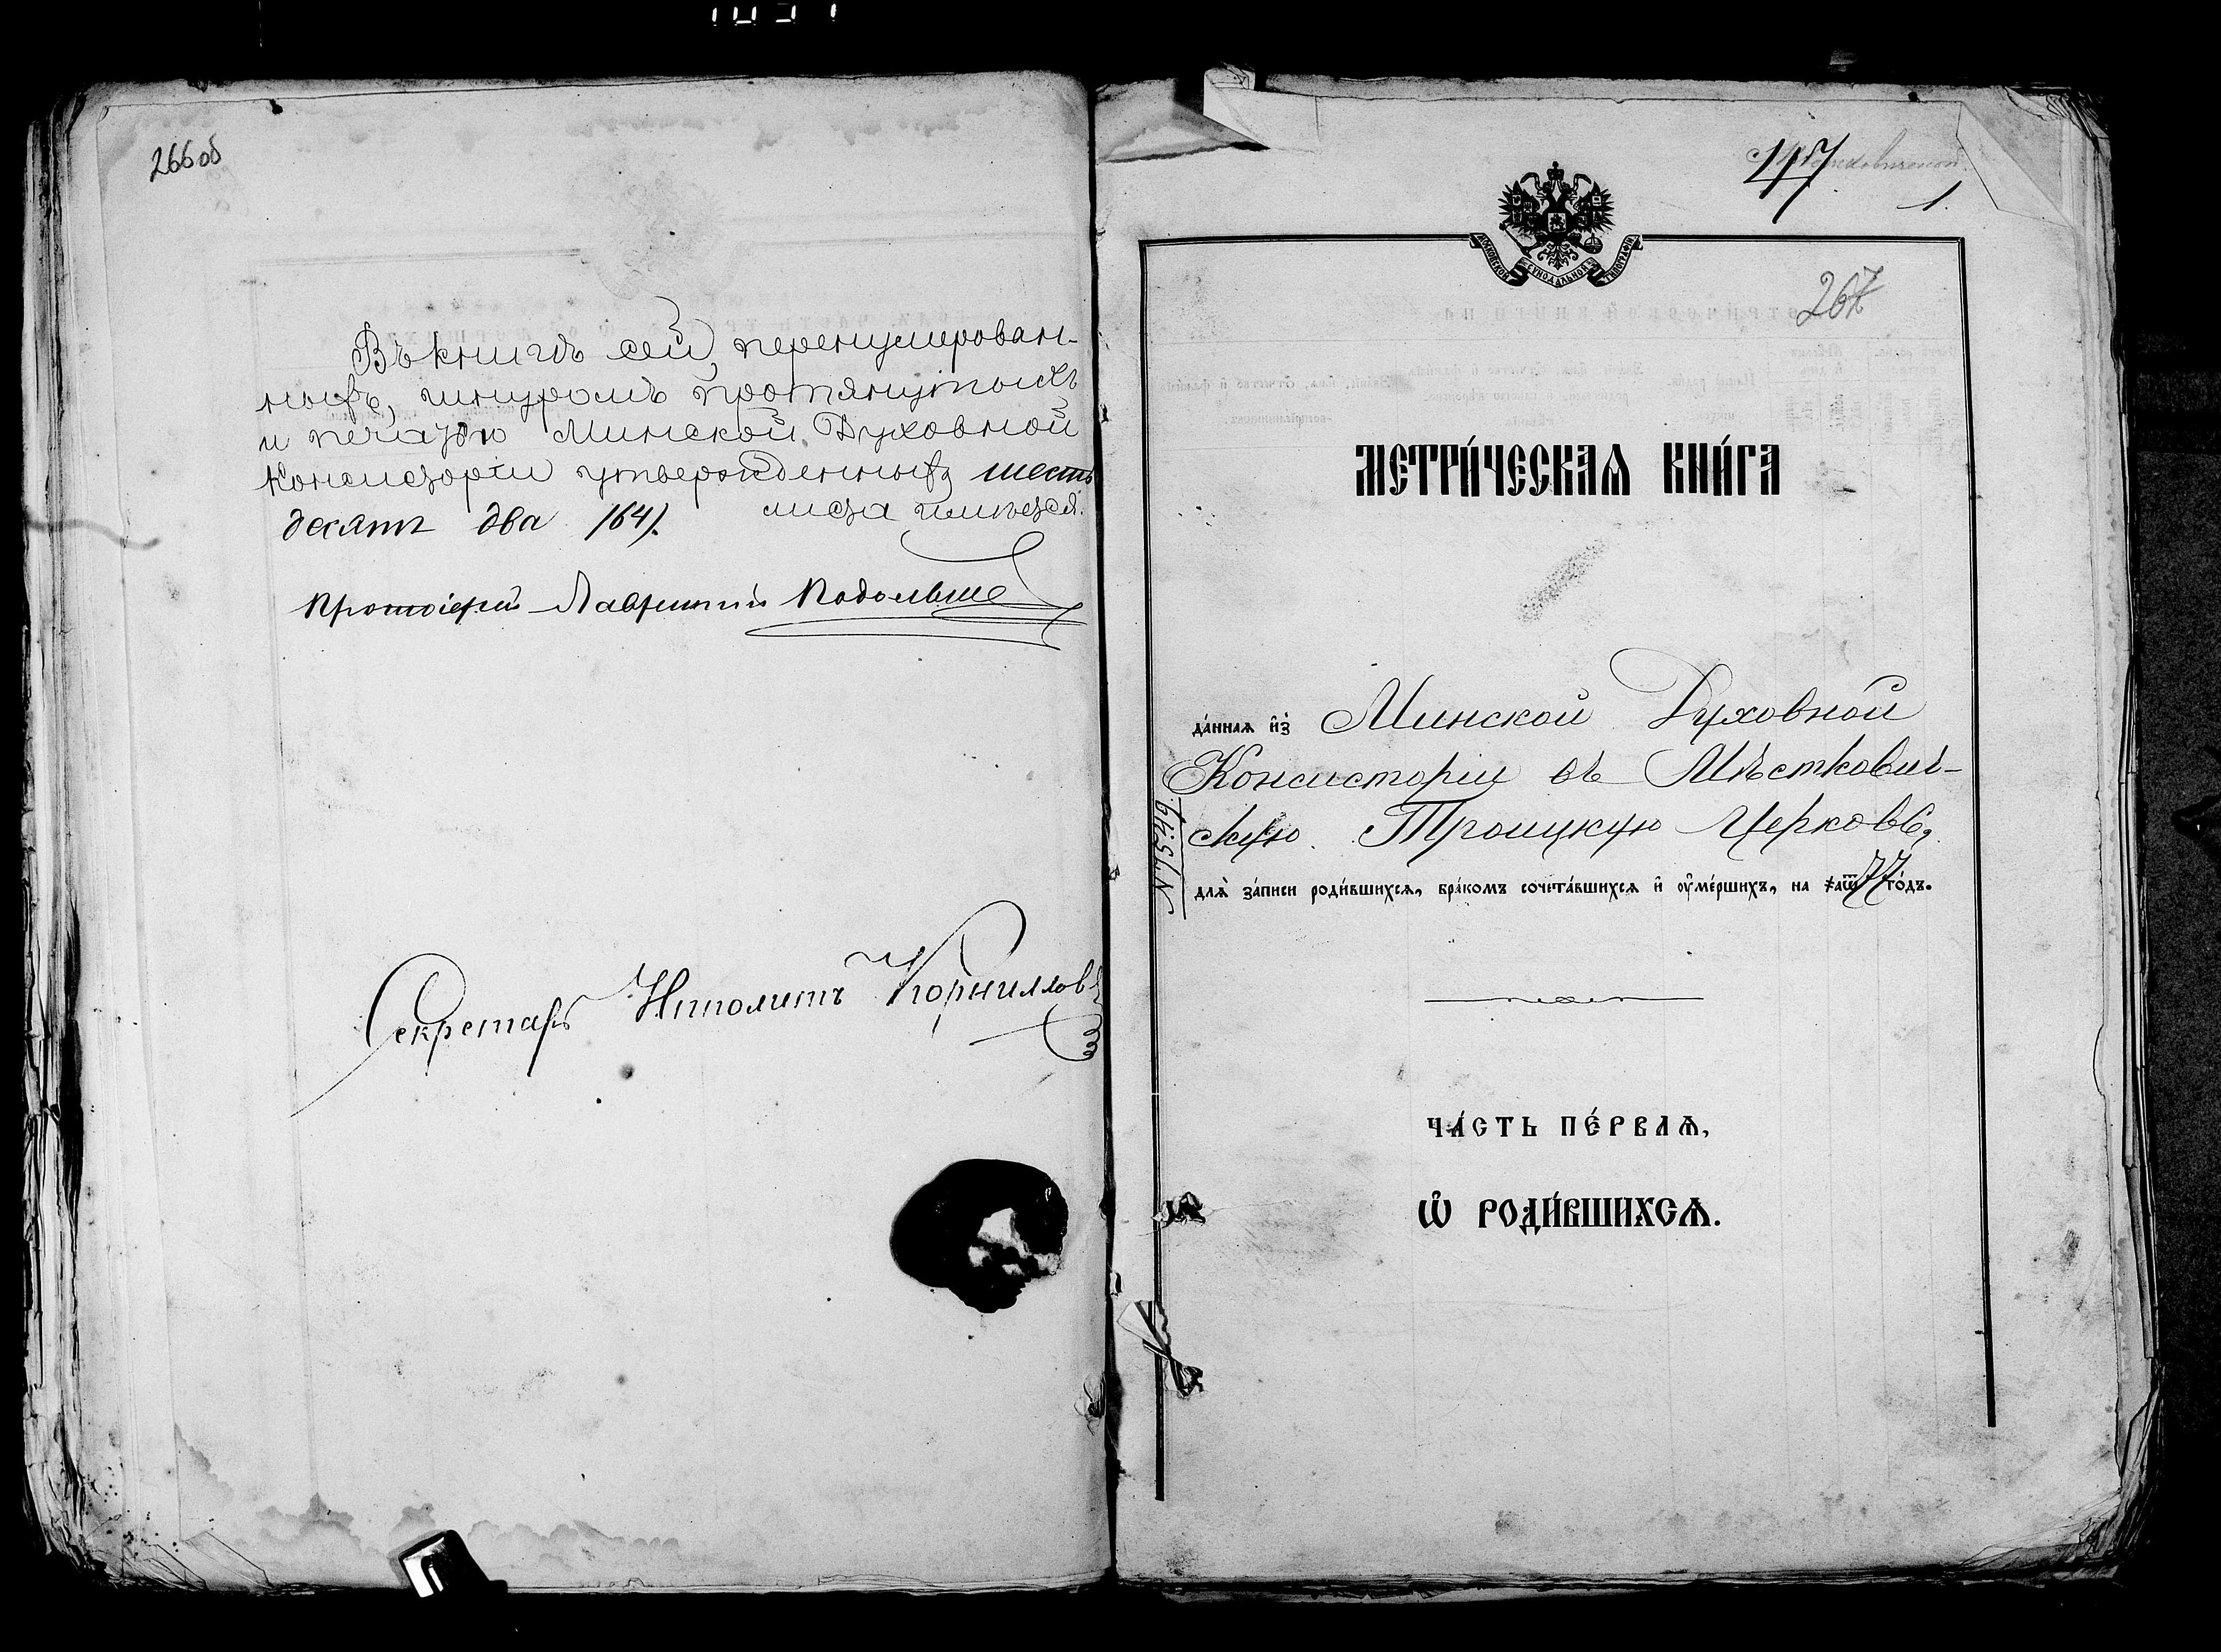 266 об
Въ книгѣ сей, перенумерован-
ныхъ, шнуромъ протянутыхъ
и печатью Минской Духовной
Консисторіи утвержденныхъ шесть
десятъ два /64/. листа имѣется.
Протоіерей Лаврентій
Секретарь Иполитъ Корниловъ
147
1.
МОСКОВСКОЙ СѴНОДАЛЬНОЙ ТИПОГРАФІИ
267
МЕТРИ́ЧЕСКАѦ КНИ́ГА
да́ннаѧ и҆з̾ Минской Духовной
Консисторіи въ Мѣсткович-
скую Троицкую Церковь,
длѧ̀ за́писи роди́вшихсѧ, бра́комъ сочета́вшихсѧ и҆ ᲂу҆ме́ршихъ, на ҂аѿ77 го́дъ.
№ 5749
ЧА́СТЬ ПЕ́РВАѦ,
Ѽ РОДИ́ВШИХСѦ.